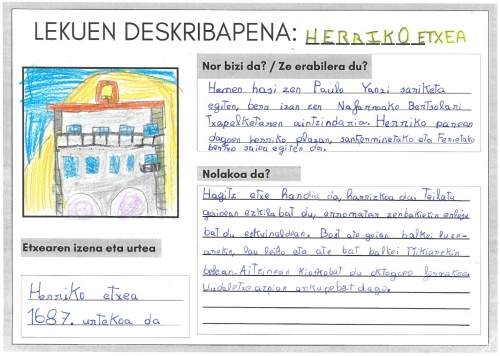 LEKUEN DESKRIBAPENA: HERRIKO ETXEA
Nor bizi da? / Ze erabilera du?
Hemen hasi zen Paulo Yanzi sariketa
egiten, bera izan zen Nafarroako Bertsolari
Txapelketaren aintzindaria. Herriko parean
dagoen herriko plazan, sanferminetako eta Ferietako
bertso saioa egiten da.
Nolakoa da?
Hagitz etxe handia da, harrizkoa da. Teilatu
gainean ezkila bat du, erromatar zenbakiekin erloju
bat du eskuinaldean. Bost ate goian balkoi luze-
arekin, lau leiho eta ate bat balkoi ttikiarekin
behean. Aitzinean kioskobat du oktogono formakoa
Udaletxe azpian arkupe bat dago.
Etxearen izena eta urtea
Herriko etxea
1687. urtekoa da